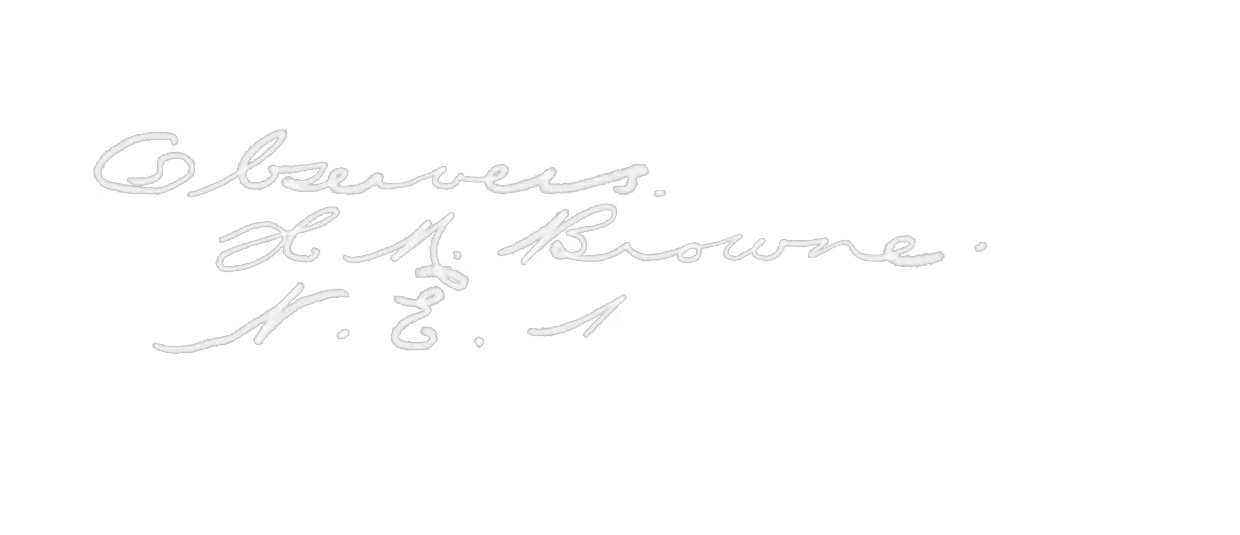 Observers.
Browne.
N. E.